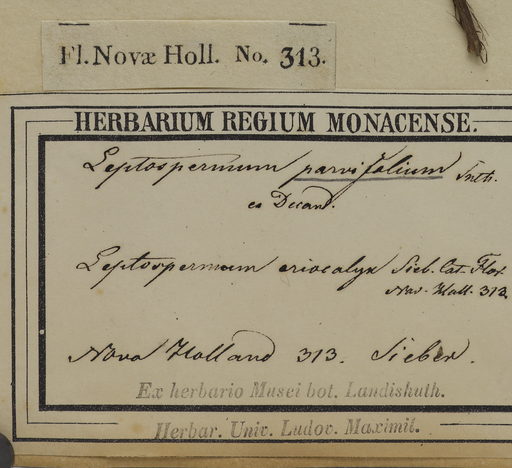 Fl. Novæ Holl. No. 313.
HERBARIUM REGIUM MONACENSE.
Leptospermum parvifolium Smth.
ex Decand.
Leptospermum eriocalyx Sieb. Cat. Flor.
Nov. Holl. 313.
Nova Holland 313. Sieber.
Ex herbario Musei bot. Landishuth.
Herbar. Univ. Ludov. Maximil.